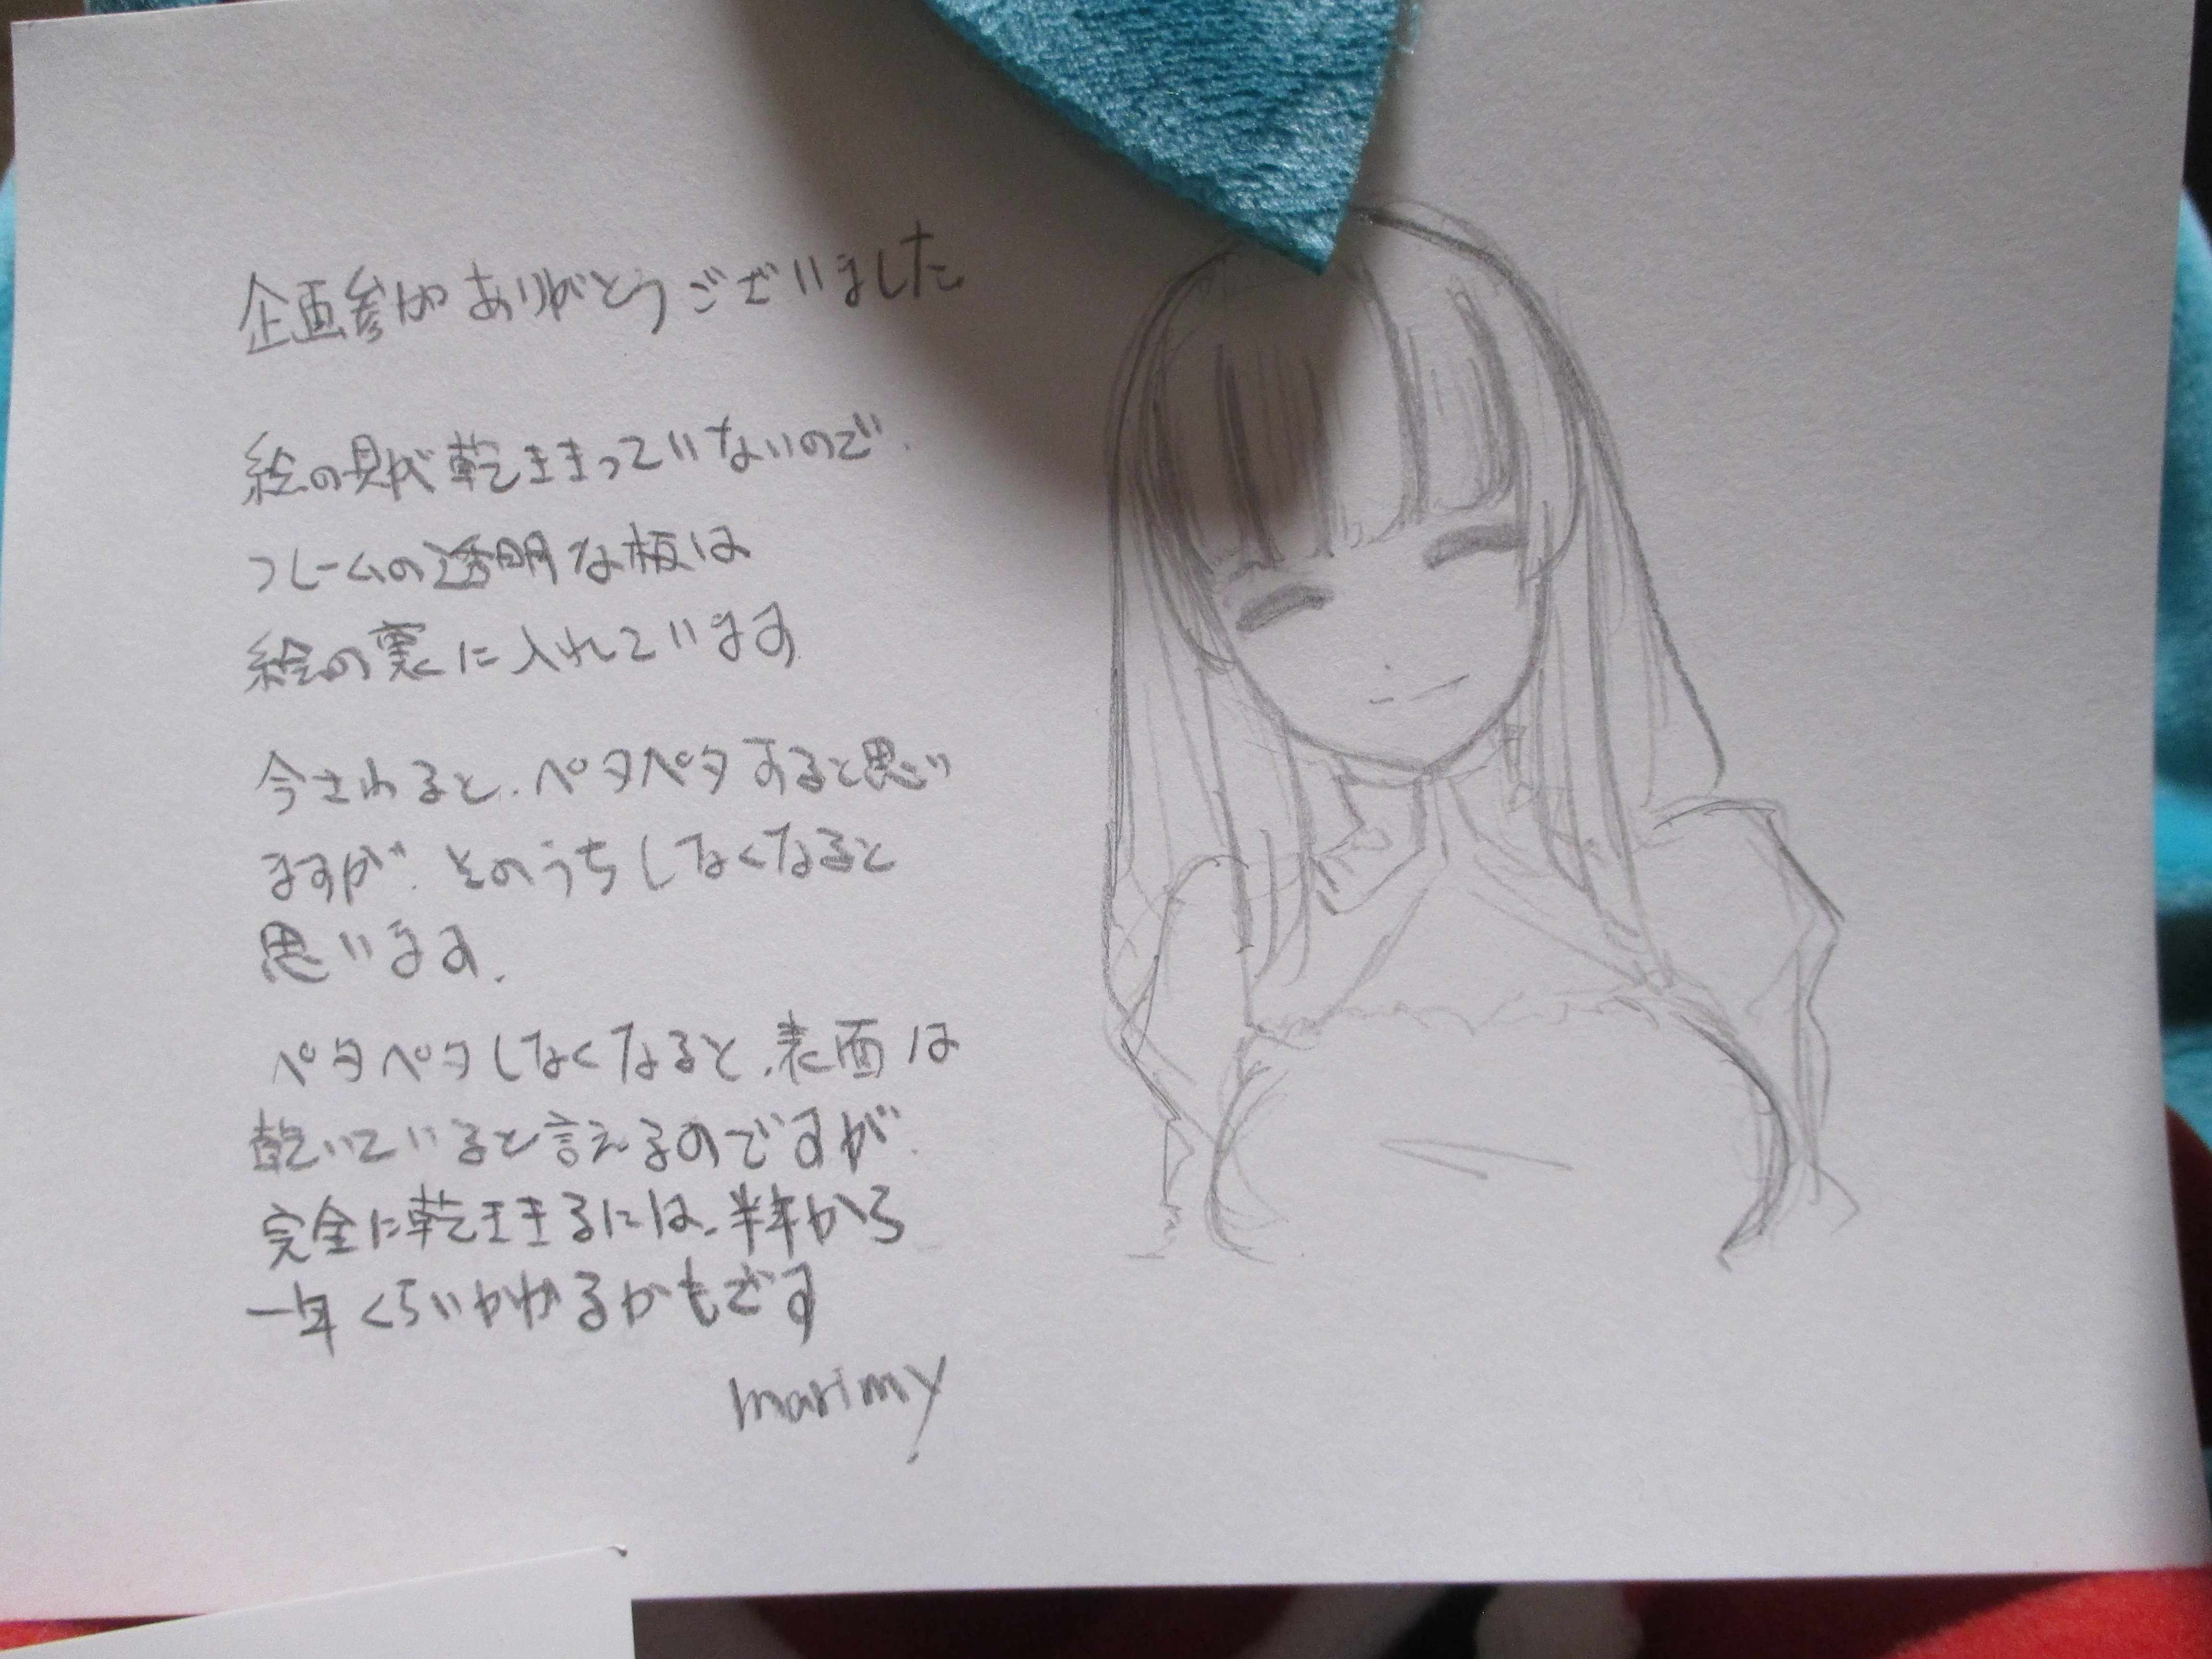 企画参加ありがとうございました
絵の具が乾ききっていないので、
フレームの透明な板は
絵の裏に入れています
今さわると、ペタペタすると思い
ますが、そのうちしなくなると
思います、
ペタペタしなくなると、表面は
乾いていると言えるのですが、
完全に乾ききるには、半年から
一年くらいかかるかもです
marimy